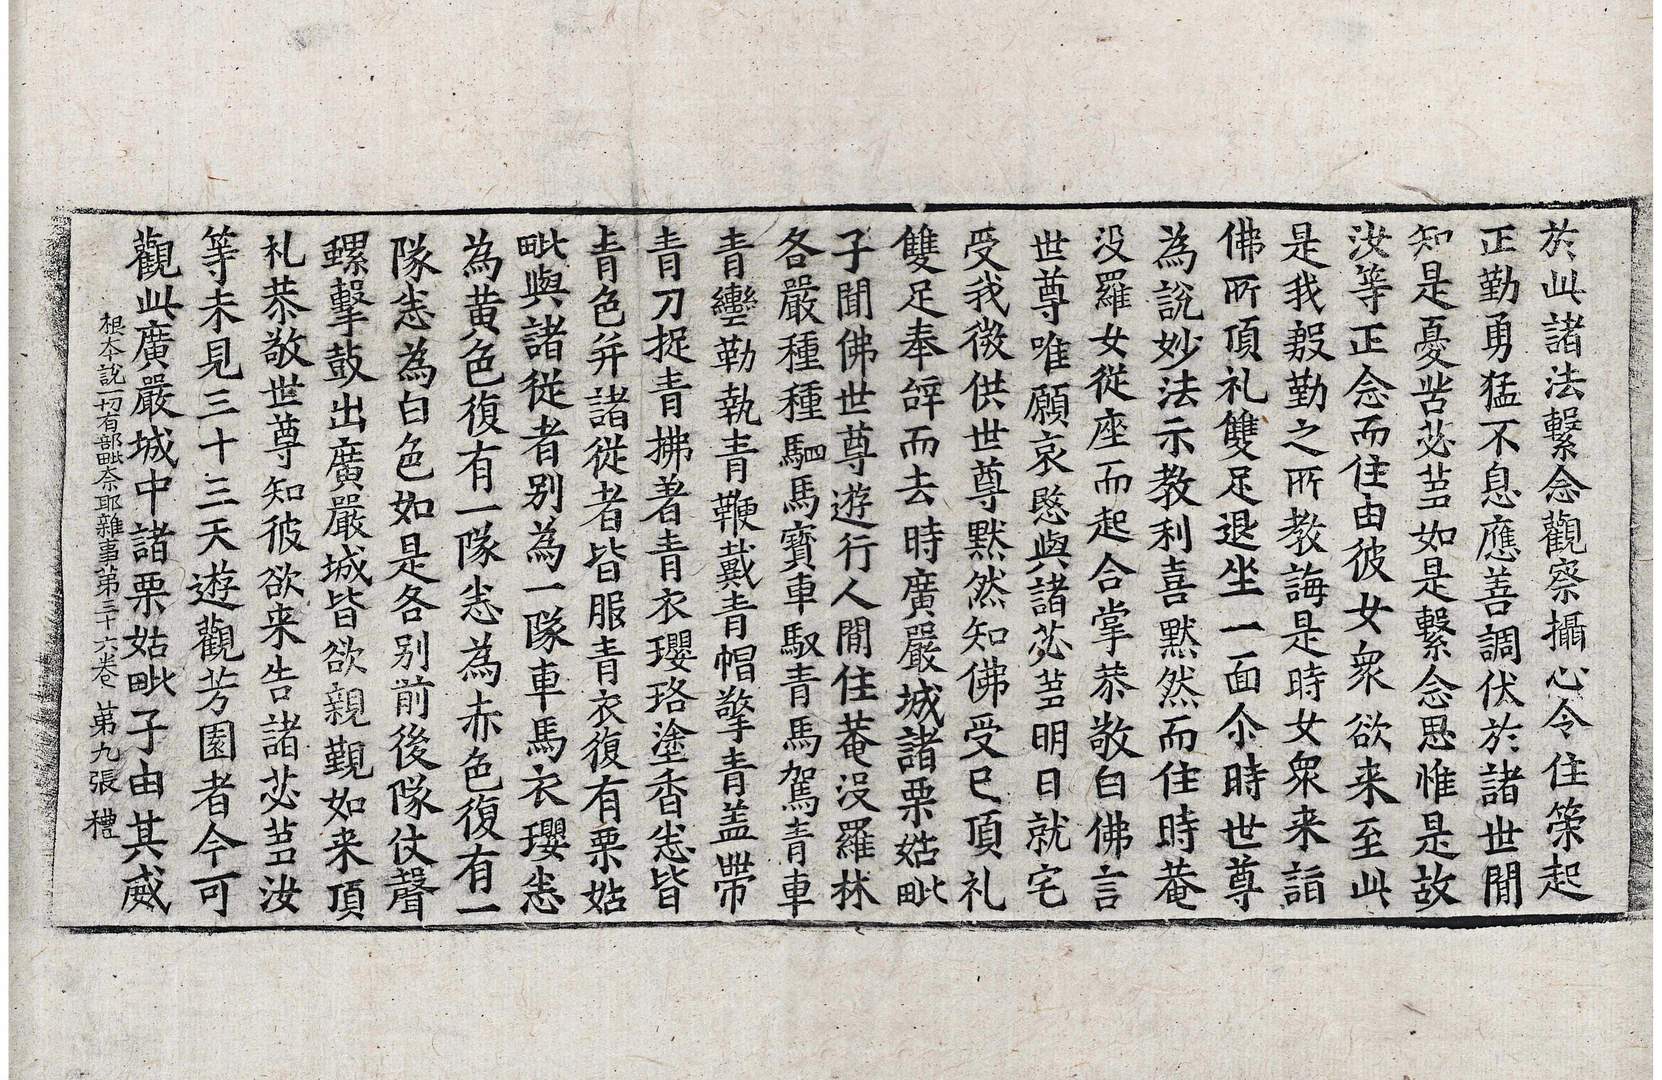 於此諸法繫念觀察攝心令住策起
正勤勇猛不息應善調伏於諸世間
知是憂苦苾蒭如是繫念思惟是故
汝等正念而住由彼女衆欲来至此
是我慇勤之所教誨是時女衆来詣
佛所頂礼雙足退坐一面尒時世尊
為說妙法示教利喜默然而住時菴
没羅女從座而起合掌恭敬白佛言
世尊唯願哀愍與諸苾蒭明日就宅
受我微供世尊默然知佛受已頂礼
雙足奉辝而去時廣嚴城諸栗姑毗
子聞佛世尊遊行人間住菴没羅林
各嚴種種駟馬寶車馭青馬駕青車
青轡勒執青鞭戴青帽擎青盖帶
青刀捉青拂著青衣瓔珞塗香悉皆
青色并諸從者皆服青衣復有栗姑
毗與諸從者別為一隊車馬衣瓔悉
為黄色復有一隊悉為赤色復有一
隊悉為白色如是各別前後隊仗聲
螺擊鼓出廣嚴城皆欲親覲如来頂
礼恭敬世尊知彼欲来告諸苾蒭汝
等未見三十三天遊觀芳園者今可
觀此廣嚴城中諸栗姑毗子由其威
根本說一切有部毗奈耶雜事第三十六卷 第九張 禮